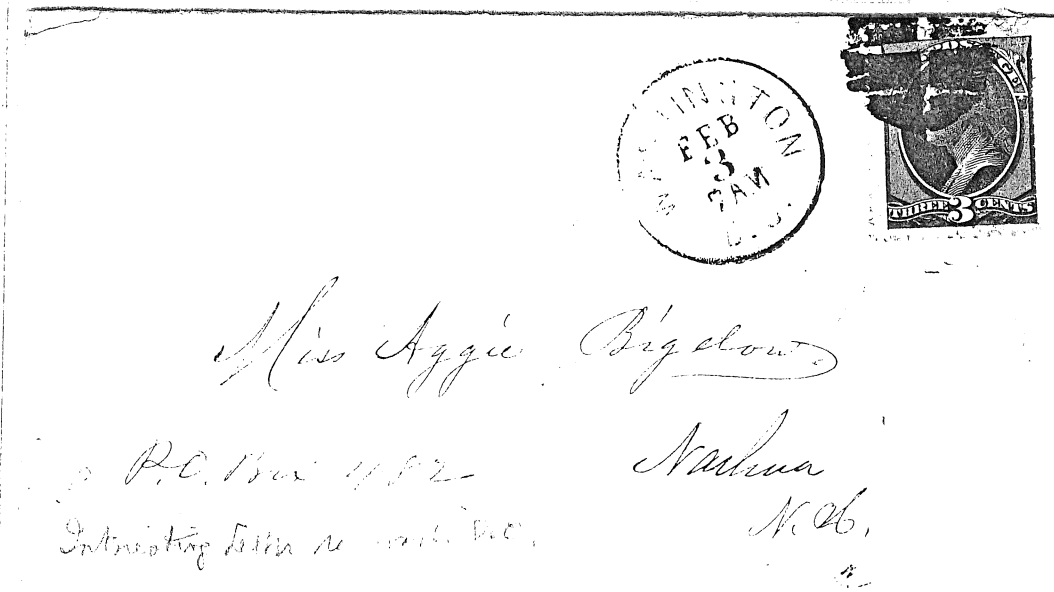 WASHINGTON
FEB
3
7AM
D.C.
THREE 3 CENTS
Miss Aggie Bigelow
Nashua
P.O. Box 482
N.H.
Interesting letter re